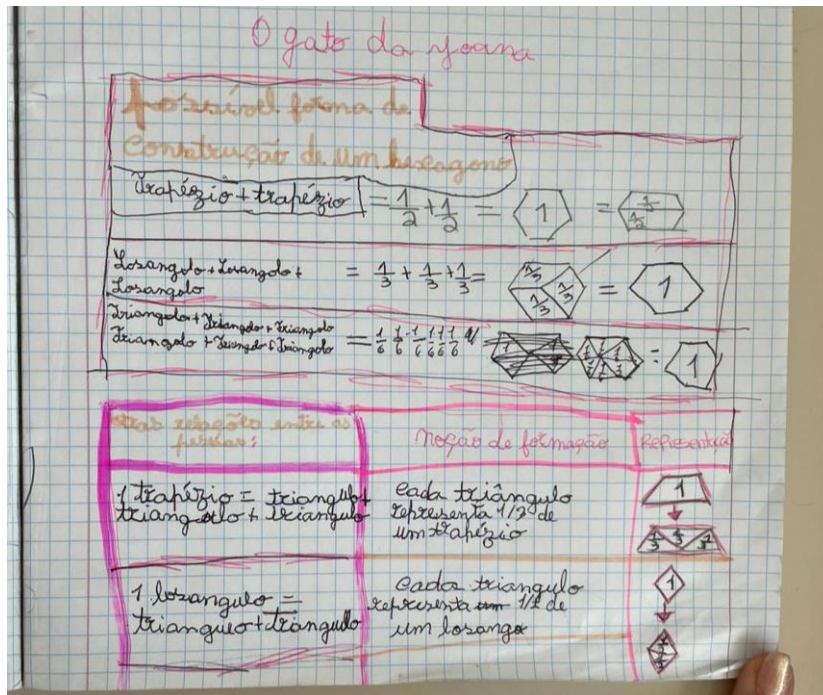 O gato da Joana
Possível forma de
Construção de um hexagono
Trapézio + trapézio = 1/2 + 1/2 = 1 = 1/2 1/2
Losangolo + Losangolo + = 1/3 + 1/3 + 1/3 = 1/3 1/3 1/3 = 1
Losangolo
Triangolo + Triangolo + Triangolo
Triangolo + Triangolo + Triangolo = 1/6 1/6 1/6 1/6 1/6 1/6 = 1
relações entre as
Noção de formação
Representação
1 trapézio = triangulo +
triangulo + triangulo
Cada triângulo
representa 1/2 de
um trapézio
1
1/3 1/3 1/3
1 losangulo =
triangulo + triangulo
Cada triangulo
representa um 1/2 de
um losango
1
1/2 1/2